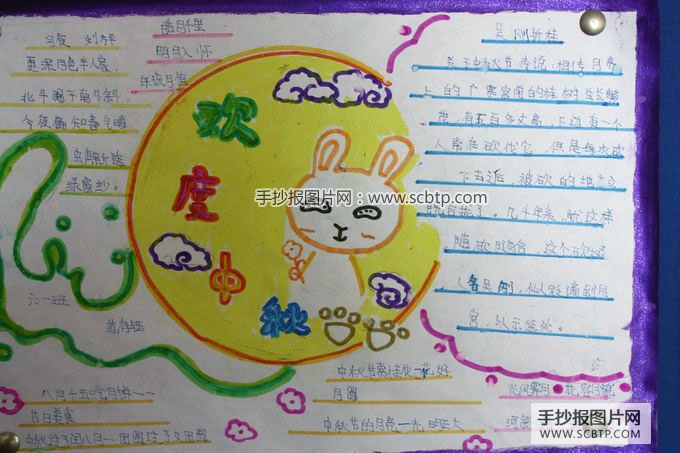 月夜 刘方平
更深月色半人家,
北斗阑干南斗斜。
今夜偏知春气暖
虫声新透
绿窗纱。
皓月千里
明月入怀
年谈月值
欢
度
中
秋
六一班
吴刚折桂
关于中秋节传说:相传月亮
上的广寒宫前的桂树生长繁
有五百多丈高,下边有一个
人常在砍伐它,但是每次砍
下去后 被砍的地方又
了。几千年来,就这样
随砍随合,这个
人名吴刚,
宫,以示惩处。
八月十五吃月饼一一
节日美食
中秋过了闰八月一 团圆过了又团圆
中秋节赏桂花一花好
月圆
中秋节的月亮一光明正大
光风霁月
手抄报图片网:www.scbtp.com
手抄报图片网
WWW.SCBTP.COM